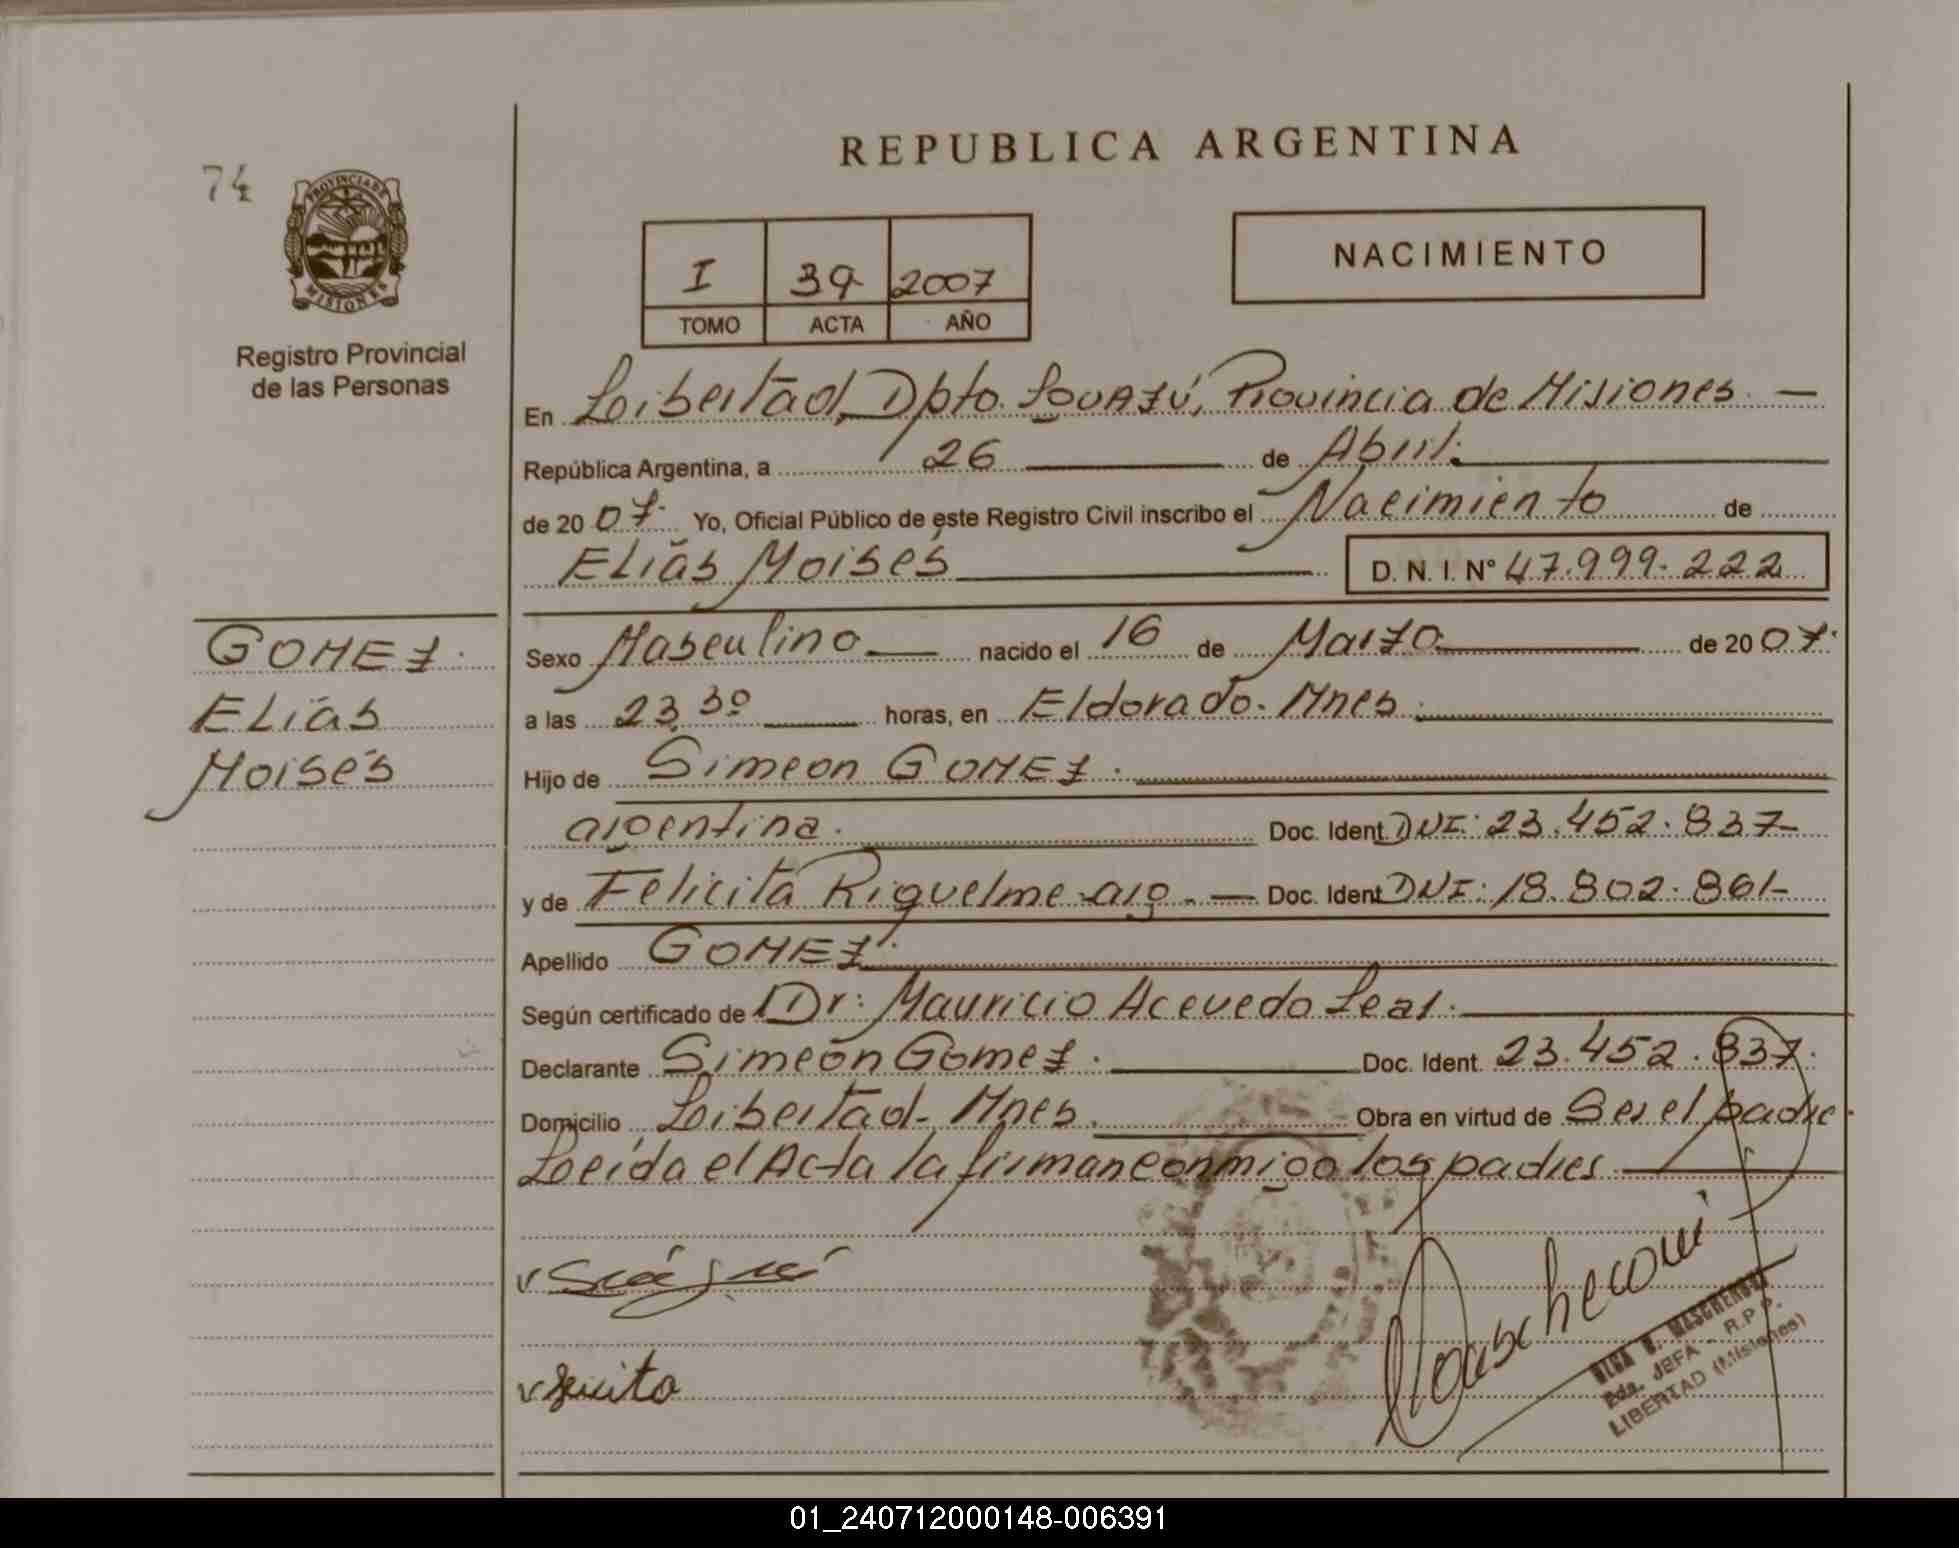 REPUBLICA ARGENTINA
74
PROVINCIA DE
MISIONES
Registro Provincial
de las Personas
I 39 2007
TOMO ACTA AÑO
NACIMIENTO
En Libertad, Dpto. Iguazú, Provincia de Misiones. —
República Argentina, a 26 de Abril.
de 2007. Yo, Oficial Público de este Registro Civil inscribo el Nacimiento de
Elías Moisés D. N. I. N° 47.999.222
GOMEZ.
Elías
Moisés
Sexo Masculino nacido el 16 de Marzo de 2007.
a las 23,30 horas, en Eldorado. Mnes.
Hijo de Simeon GOMEZ.
argentina. Doc. Ident. DNI: 23.452.837-
y de Felicita Riquelme-arg. — Doc. Ident DNI: 18.802.861-
Apellido GOMEZ.
Según certificado de Dr: Mauricio Acevedo Leal.
Declarante Simeón Gomez. Doc. Ident. 23.452.837.
Domicilio Libertad- Mnes. Obra en virtud de Ser el padre.
Leída el Acta la firman conmigo los padres.
OLGA MASCHERONI
JEFA R.P.P.
LIBERTAD (Misiones)
01_240712000148-006391